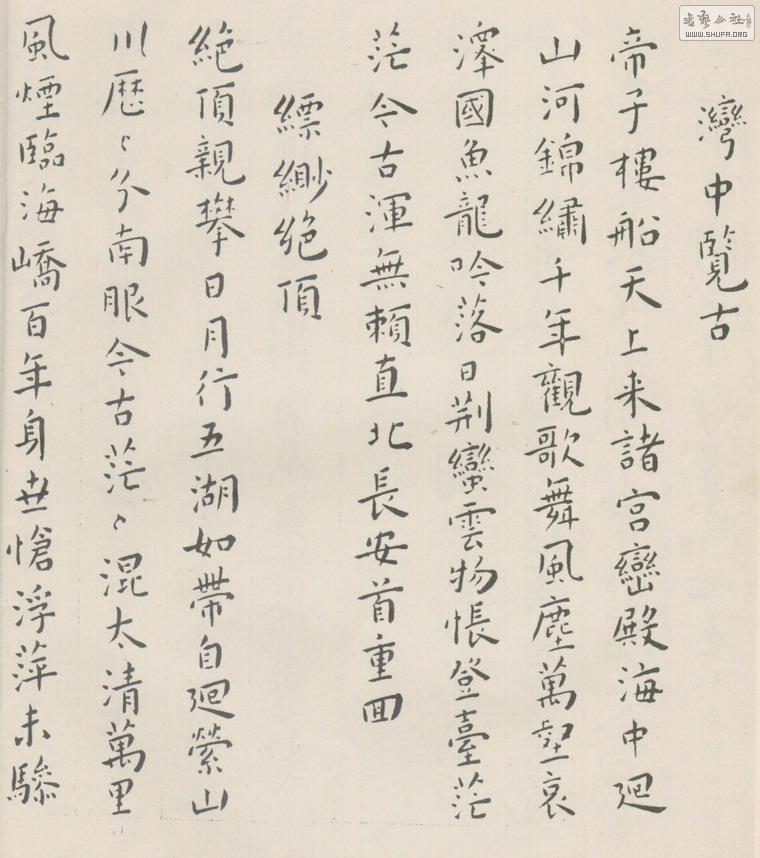 灣中覽古
帝子樓船天上来諸宮巒殿海中廻
山河錦繡千年觀歌舞風塵萬壑哀
澤國魚龍吟落日荆蠻雲物悵登臺茫
茫今古渾無頼直北長安首重回
縹緲绝頂
絶頂親攀日月行五湖如帶自廻縈山
川歷〻分南眼今古茫〻混太清萬里
風煙臨海嶠百年身世愴浮萍未驂
書藝公社
WWW.SHUFA.ORG